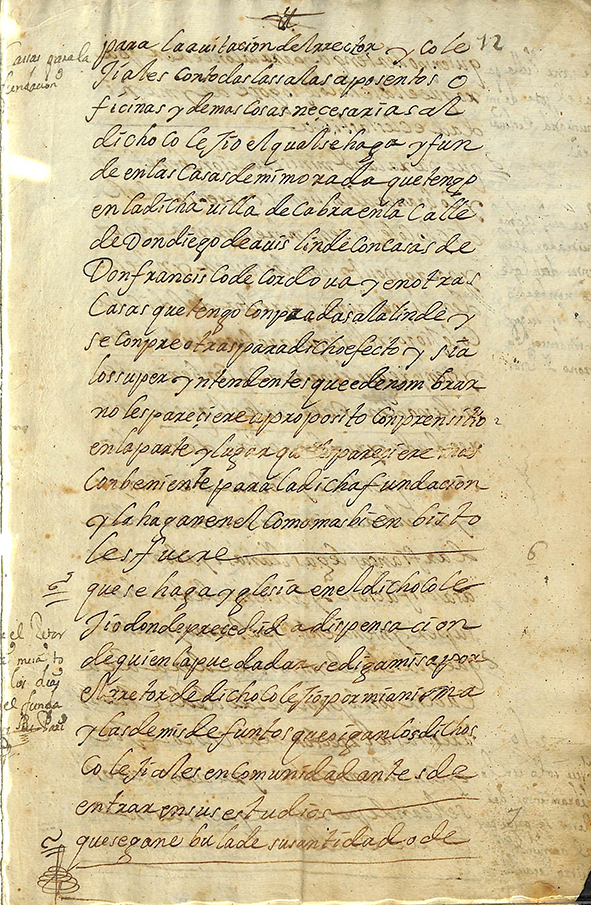 12
Cassas para la
fundacion
para la avitacion del rrector y cole
Jiales con todas las salas aposentos o
ficinas y demas cosas necesarias al
dicho colejio el qual se haga y fun
de en las casas de mi morada que tengo
en la dicha villa de Cabra en la calle
de Don diego de auis linde con casas de
Don francisco de cordoua y en otras
Casas que tengo conpradas a la linde y
se conpre otras para dicho efecto y si a
los super yntendentes que e de nombrar
no les pareciere a proposito conpren sitio
en la parte y lugar que les pareciere mas
conbeniente para la dicha fundacion
y la hagan en el como mas bien bisto
les fuere
6
que se haga yglesia en el dicho cole
Jio donde precedida dispensacion
de quien la pueda dar se diga misa por
el rretor de dicho colejio por mi anima
y las de mis defuntos que oigan los dichos
colejiales en comunidad antes de
entrar en sus estudios
los dias
el funda
7
que se gane bula de su santidad o de